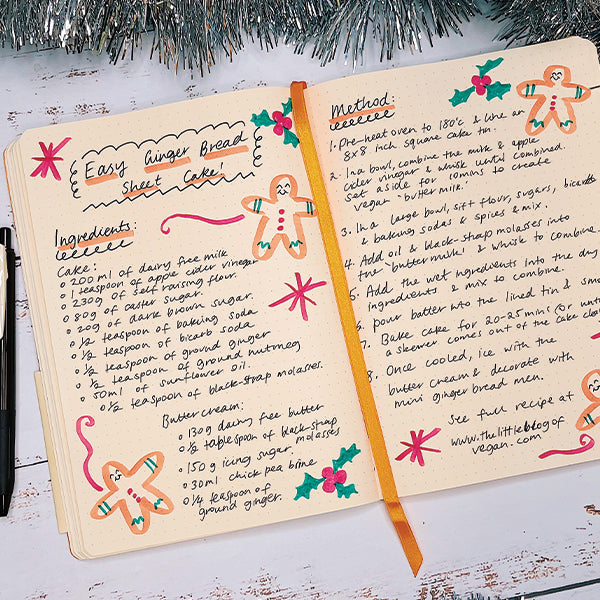 Easy Ginger Bread
Sheet Cake!
Ingredients:
Cake:
200ml of dairy free milk
1 teaspoon of apple cider vinegar
230g of self raising flour.
80g of caster sugar.
20g of dark brown sugar.
1/2 teaspoon of baking soda
1/2 teaspoon of bicarb soda
1/2 teaspoon of ground ginger
1/2 teaspoon of ground nutmeg
50ml of sunflower oil.
1/2 teaspoon of black-strap molasses.
Butter cream:
130g dairy free butter
1/2 tablespoon of black-strap
molasses
150g icing sugar.
30ml chick pea brine
1/4 teaspoon of
ground ginger.
Method:
1. Pre-heat oven to 180°c & line an
8x8 inch square cake tin.
2. In a bowl, combine the milk & apple
cider vinegar & whisk until combined.
Set aside for 10mins to create
vegan "butter milk."
3. In a large bowl, sift flour, sugars, bicarb
& baking sodas & spices & mix.
4. Add oil & black-strap molasses into
the "butter milk" & whisk to combine.
5. Add the wet ingredients into the dry
ingredients & mix to combine.
6. pour batter into the lined tin &
7. Bake cake for 20-25mins (or until
a skewer comes out of the cake
8. Once cooled, ice with the
butter cream & decorate with
mini ginger bread men.
See full recipe at
www.thelittleblogof
vegan.com